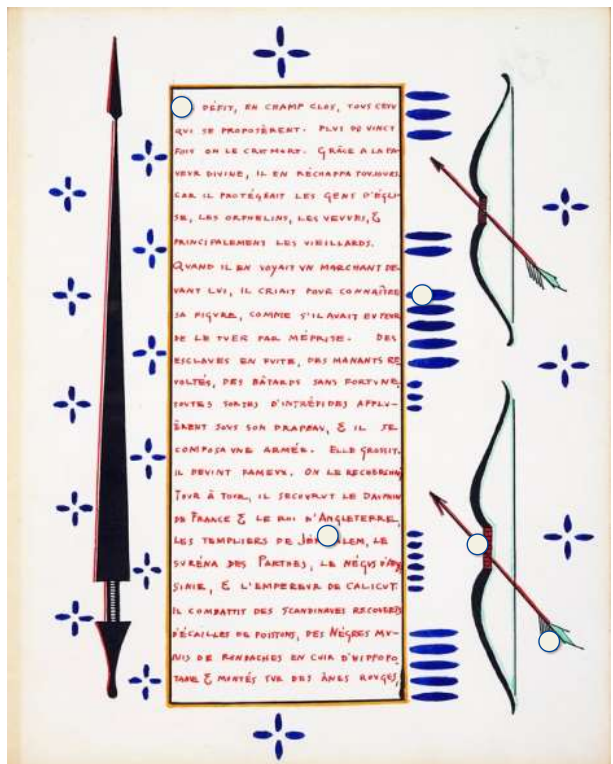 DÉFIT, EN CHAMP CLOS, TOVS CEVX
QVI SE PROPOSÈRENT. PLVS DE VINGT
FOIS ON LE CRVT MORT. GRÂCE A LA FA
VEVR DIVINE, IL EN RÉCHAPPA TOVJOVRS,
CAR IL PROTÉGEAIT LES GENS D'ÉGLI-
SE, LES ORPHELINS, LES VEVVES, &
PRINCIPALEMENT LES VIEILLARDS.
QVAND IL EN VOYAIT VN MARCHANT DE-
VANT LVI, IL CRIAIT POVR CONNAÎTRE
SA FIGVRE, COMME S'IL AVAIT EV PEVR
DE LE TVER PAR MÉPRISE. DES
ESCLAVES EN FVITE, DES MANANTS RE
VOLTÉS, DES BÂTARDS SANS FORTVNE,
TOVTES SORTES D'INTRÉPIDES AFFLV-
ÈRENT SOVS SON DRAPEAV, & IL SE
COMPOSA VNE ARMÉE. ELLE GROSSIT.
IL DEVINT FAMEVX. ON LE RECHERCHA
TOVR À TOVR, IL SECOVRVT LE DAVPHIN
DE FRANCE & LE ROI D'ANGLETERRE,
LES TEMPLIERS DE LE
SVRÉNA DES PARTHES, LE NÉGVS D'ABYS
SINIE, & L'EMPEREVR DE CALICVT.
IL COMBATTIT DES SCANDINAVES RECOVVERTS
D'ÉCAILLES DE POISSONS, DES NÈGRES MV-
NIS DE RONDACHES EN CVIR D'HIPPOPO
TAME & MONTÉS SVR DES ÂNES ROVGES,